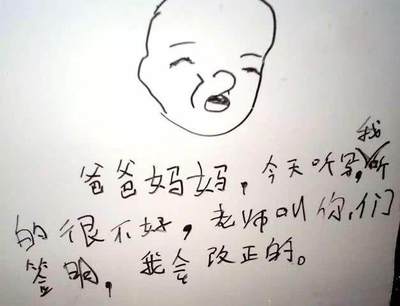 爸爸妈妈，今天听写，我听
的很不好，老师叫你，们
签明，我会改正的。